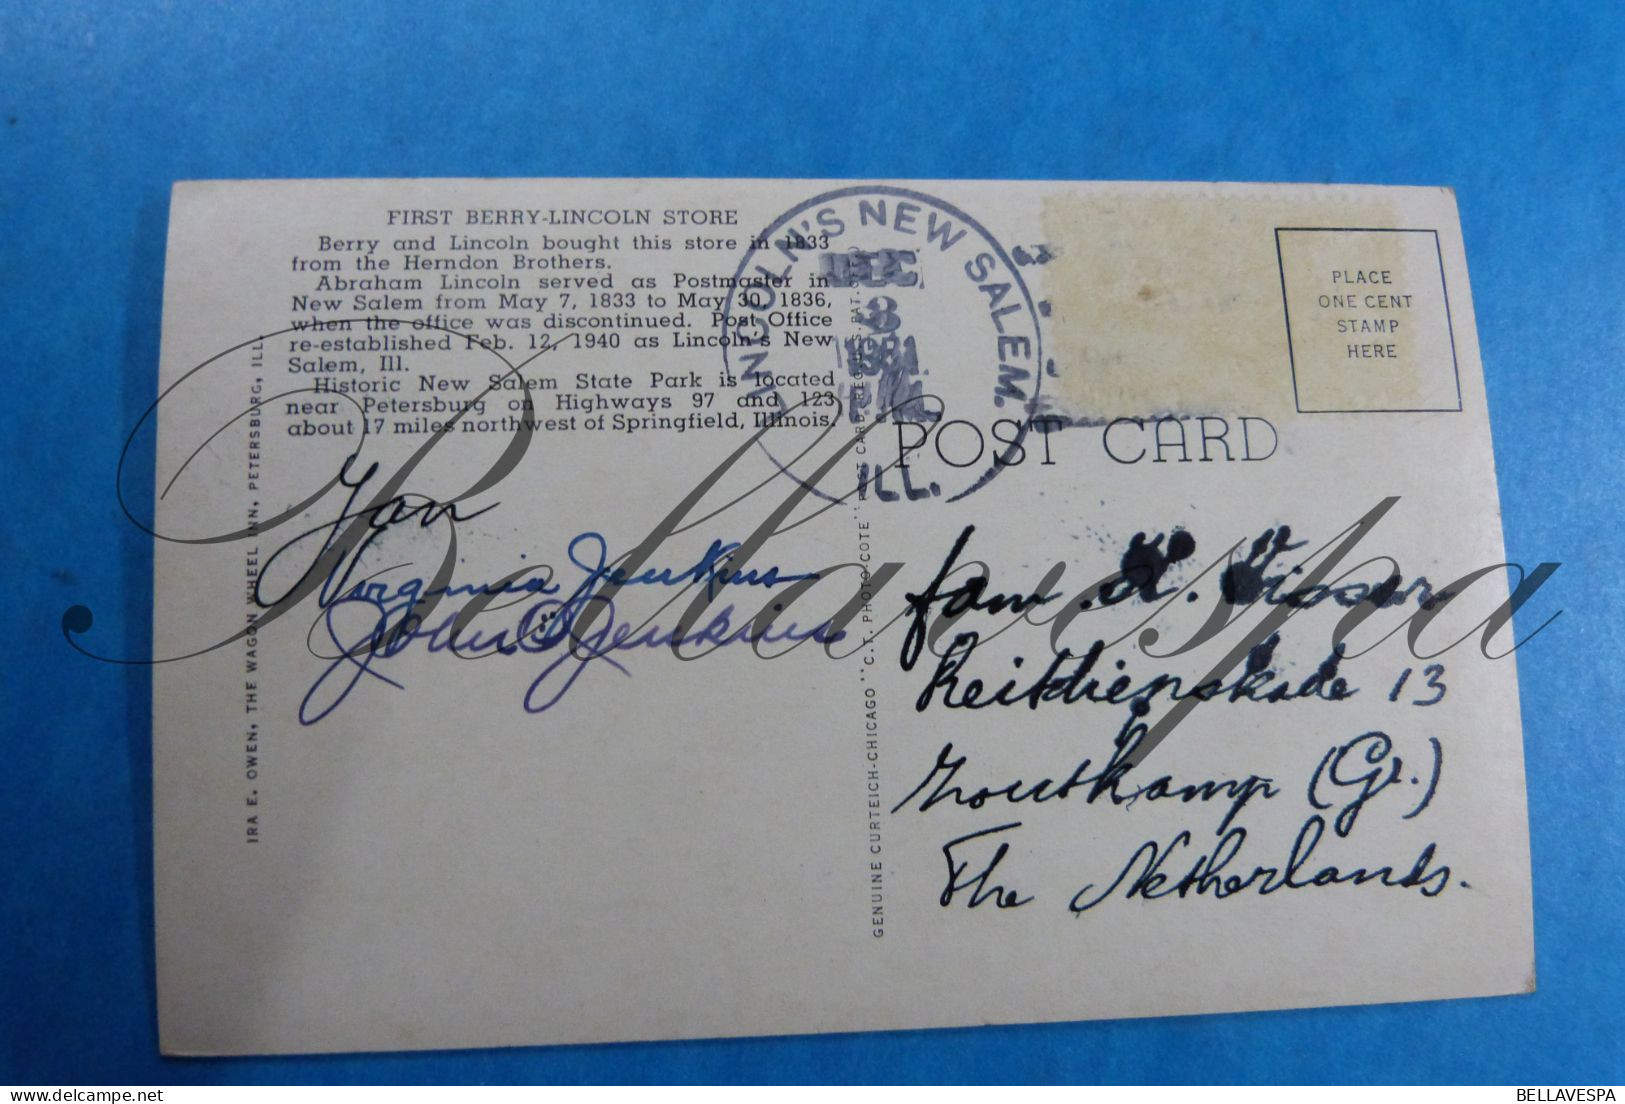 FIRST BERRY-LINCOLN STORE
Berry and Lincoln bought this store in 1833
from the Herndon Brothers.
Abraham Lincoln served as Postmaster in
New Salem from May 7, 1833 to May 30, 1836,
when the office was discontinued. Post Office
re-established Feb. 12, 1940 as Lincoln's New
Salem, Ill.
Historic New Salem State Park is located
near Petersburg on Highways 97 and 123
about 17 miles northwest of Springfield, Illinois.
IRA E. OWEN, THE WAGON WHEEL INN, PETERSBURG, ILL.
Jan
Virginia Jenkins
John Jenkins
LINCOLN'S NEW SALEM.
DEC
8
ILL.
GENUINE CURTEICH-CHICAGO "C.T. PHOTO-COTE" POST CARD REG. U.S. PAT. OFF.
POST CARD
PLACE
ONE CENT
STAMP
HERE
fam. Visser
Reitdiepskade 13
Zoutkamp (Gr.)
The Netherlands.
Bellavespa
BELLAVESPA